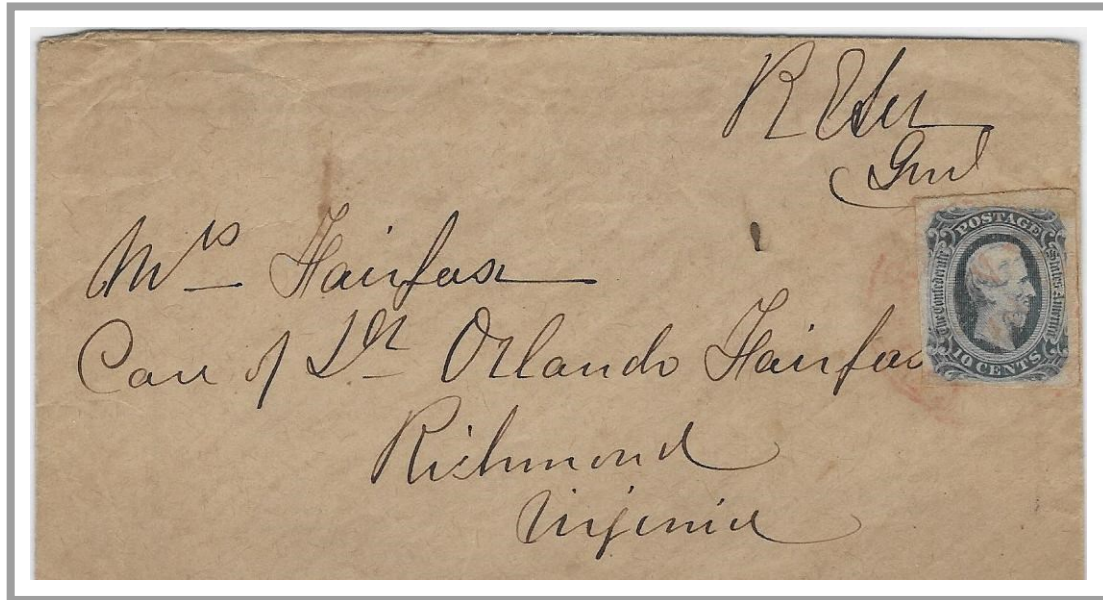 R E Lee
Genl
Mrs Fairfax
Care of Dr Orlando Fairfax
Richmond
Virginia
POSTAGE
The Confederate States America
10 CENTS